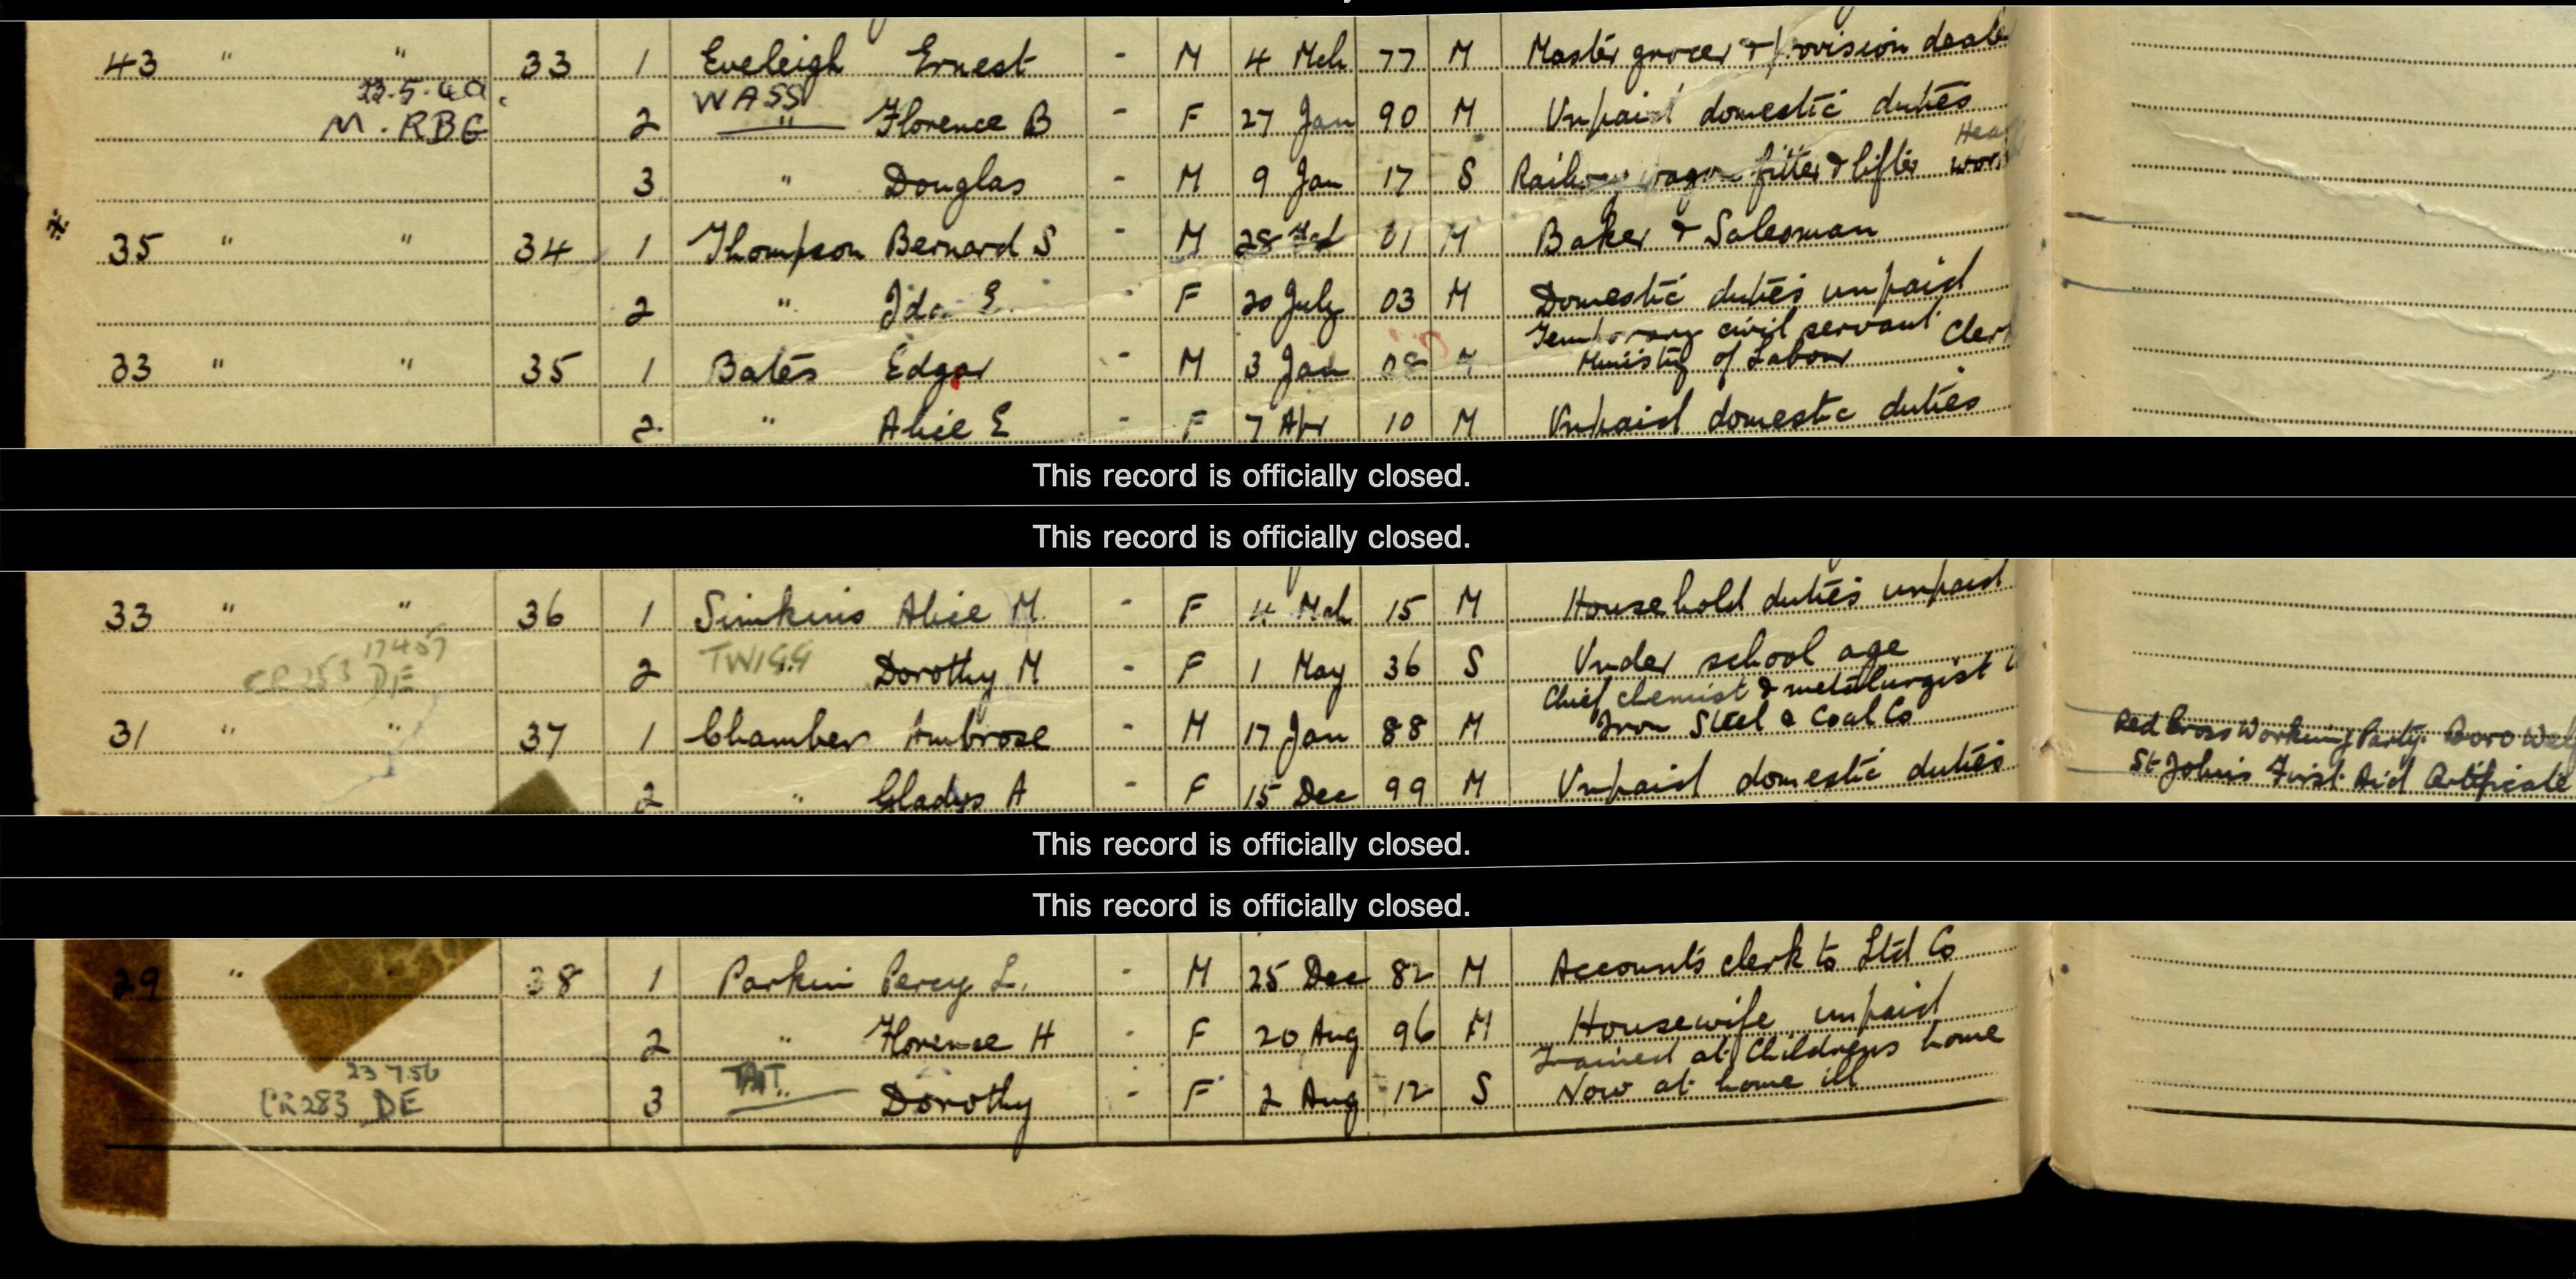 43 " " 33 1 Eveleigh Ernest - M 4 Mch 77 M Master grocer & provision deale
22.5.40. WASS
M. RBG 2 " Florence B - F 27 Jan 90 M Unpaid domestic duties
Hea
3 " Douglas - M 9 Jan 17 S Railway wagon fitter & lifter wor
35 " " 34 1 Thompson Bernard S - M 28 01 M Baker & Salesman
2 " Ida E. - F 20 July 03 M Domestic duties unpaid
Temporary civil servant Cler
33 " " 35 1 Bates Edgar - M 3 Jan 08 M Ministry of Labour
2 " Alice E - F 7 Apr 10 M Unpaid domestic duties
This record is officially closed.
This record is officially closed.
33 " " 36 1 Simkins Alice M. - F 4 Mch 15 M Household duties unpaid
17457 TWIGG
CR253 DE 2 " Dorothy M - F 1 May 36 S Under school age
Chief chemist & metallurgist
31 " " 37 1 Chamber Ambrose - M 17 Jan 88 M Iron Steel & Coal Co Red Cross Working Party. Boro Wel
2 " Gladys A - F 15 Dec 99 M Unpaid domestic duties St John's First Aid Certificate
This record is officially closed.
This record is officially closed.
29 " 38 1 Parkin Percy L. - M 25 Dec 82 M Accounts clerk to Ltd Co
2 " Florence H - F 20 Aug 96 M Housewife unpaid
23 7 56 Trained at Childrens home
CR283 DE 3 " Dorothy - F 2 Aug 12 S Now at home ill